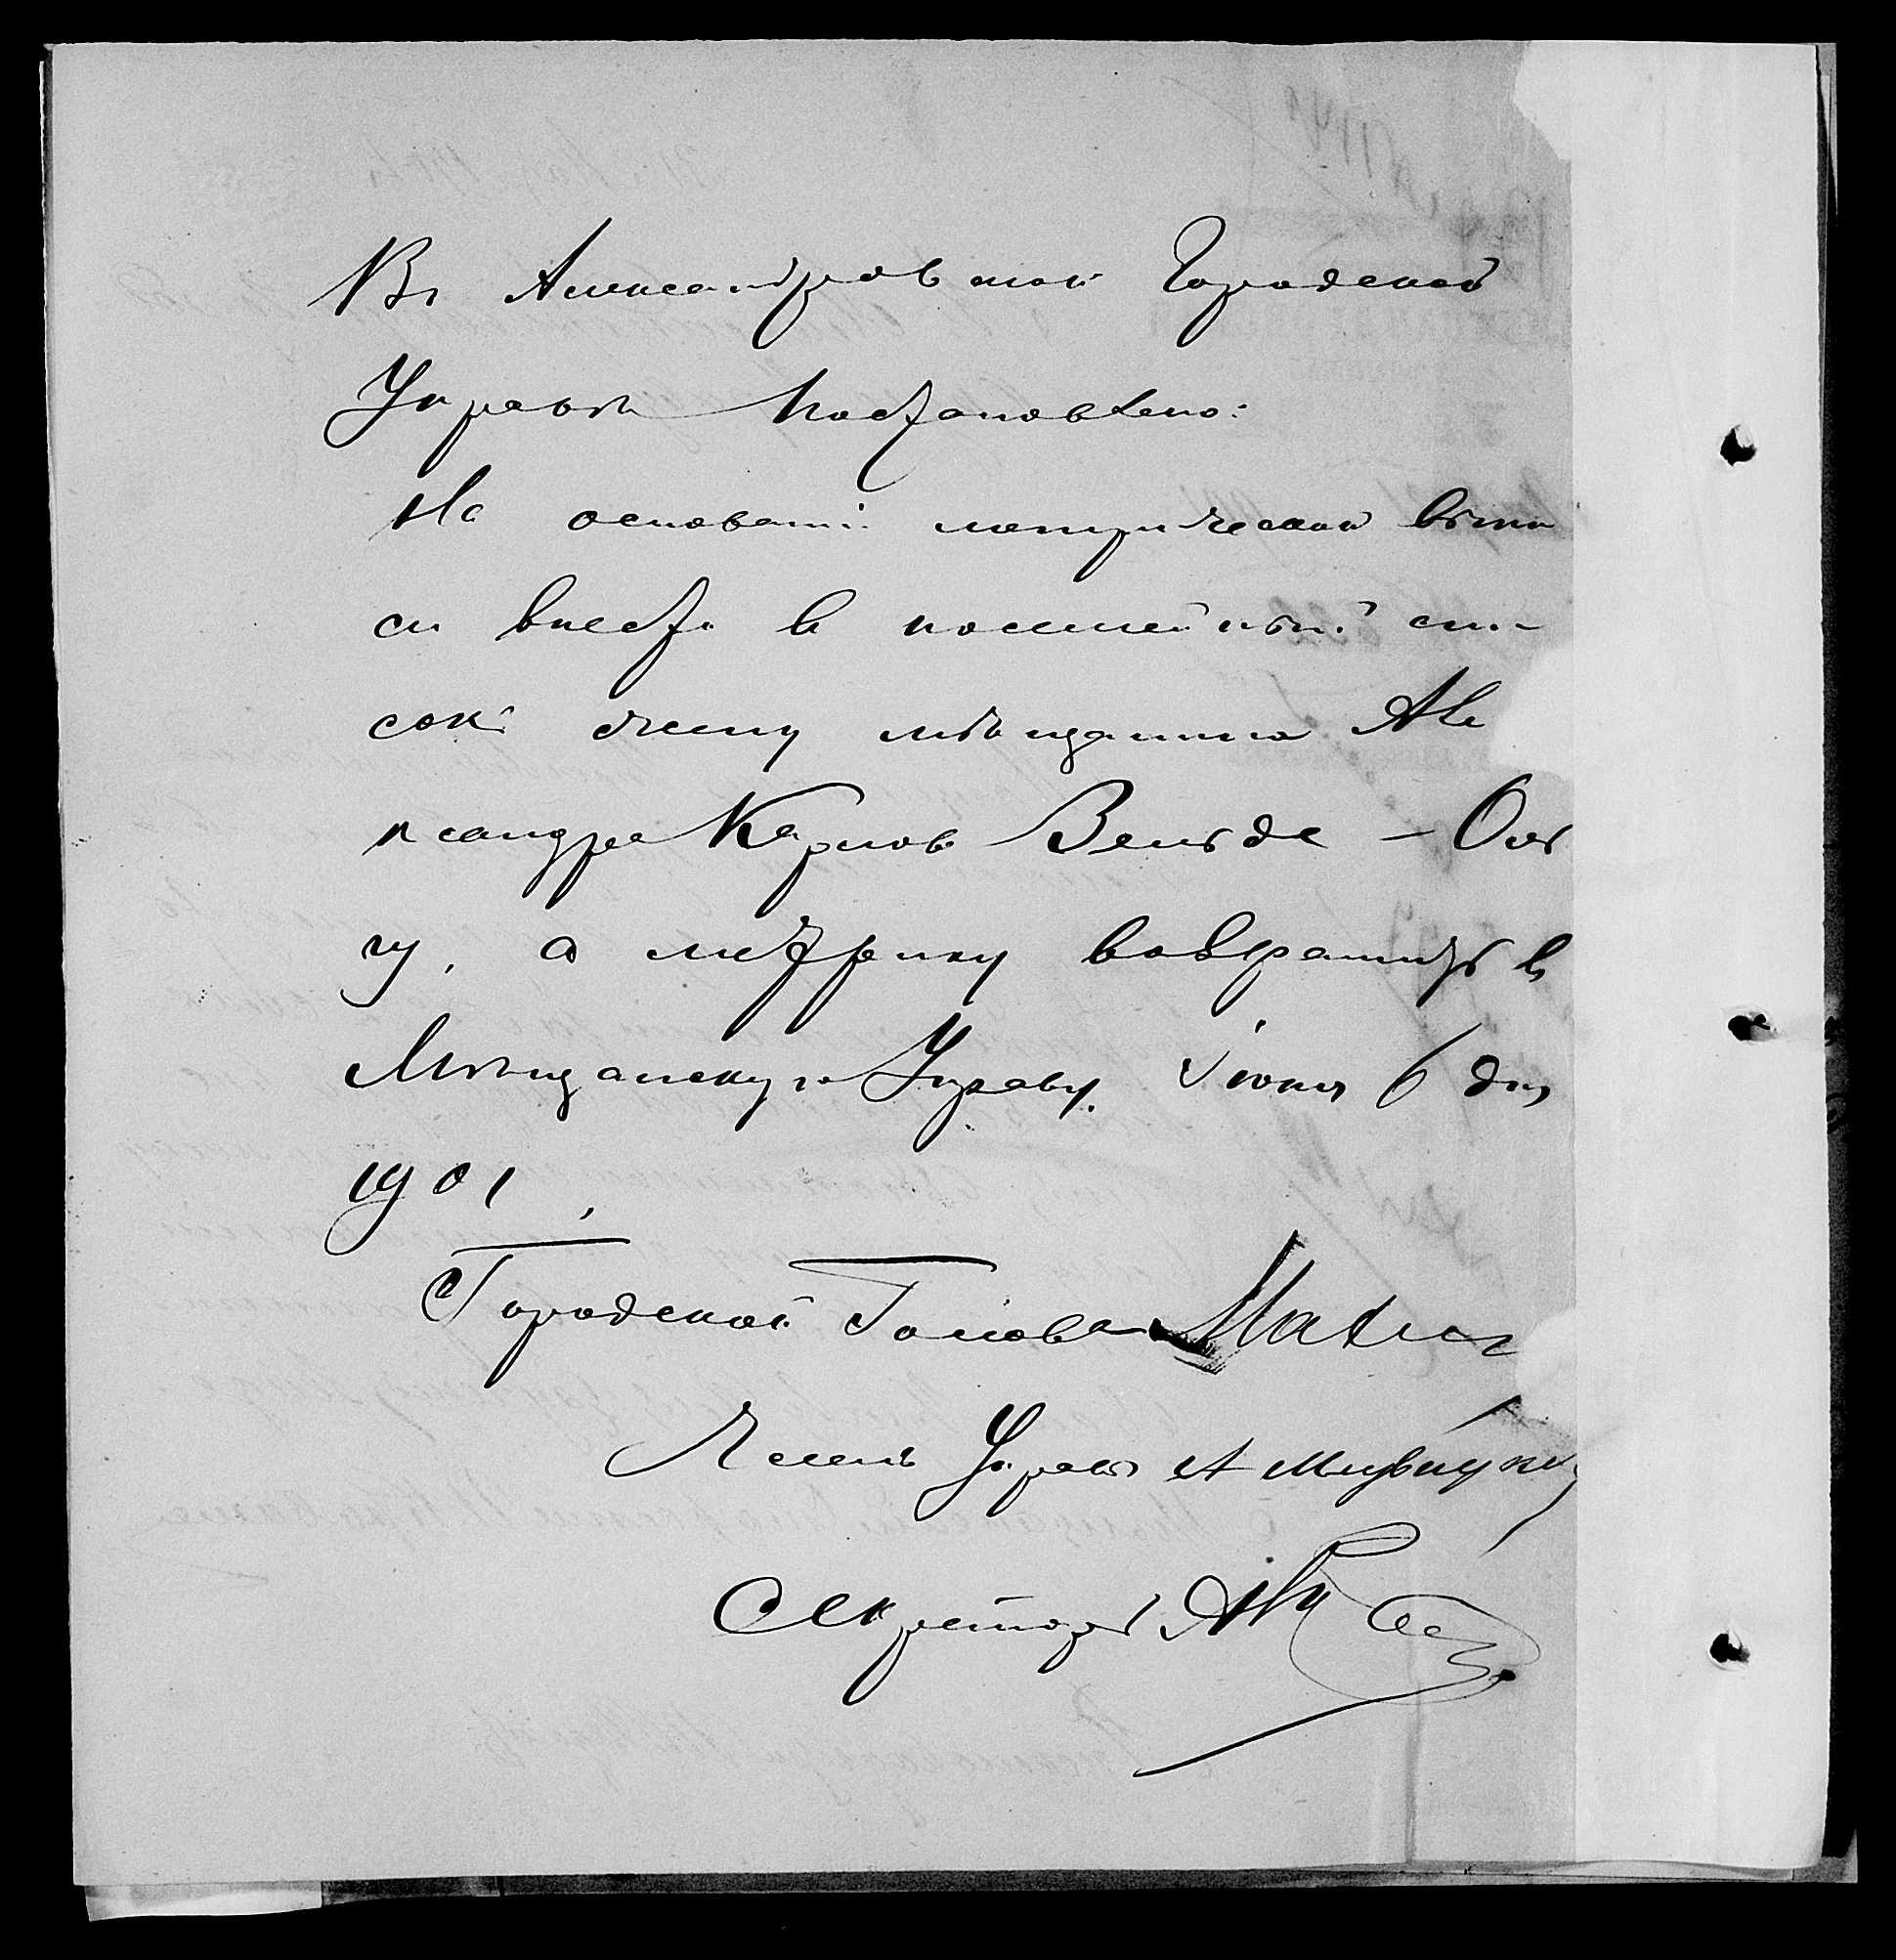 Въ Александровской Городской
Управѣ постановлено:
На основаніи метрической выпи
си внести въ посемейный спи
сокъ дочь мѣщанина Але
ксандра Карлова Вельде – Оль
гу, а метрику возвратить въ
Мѣщанскую Управу. Іюня 6 дня
1901,
Городской Голова
Членъ Управы А
Секретарь